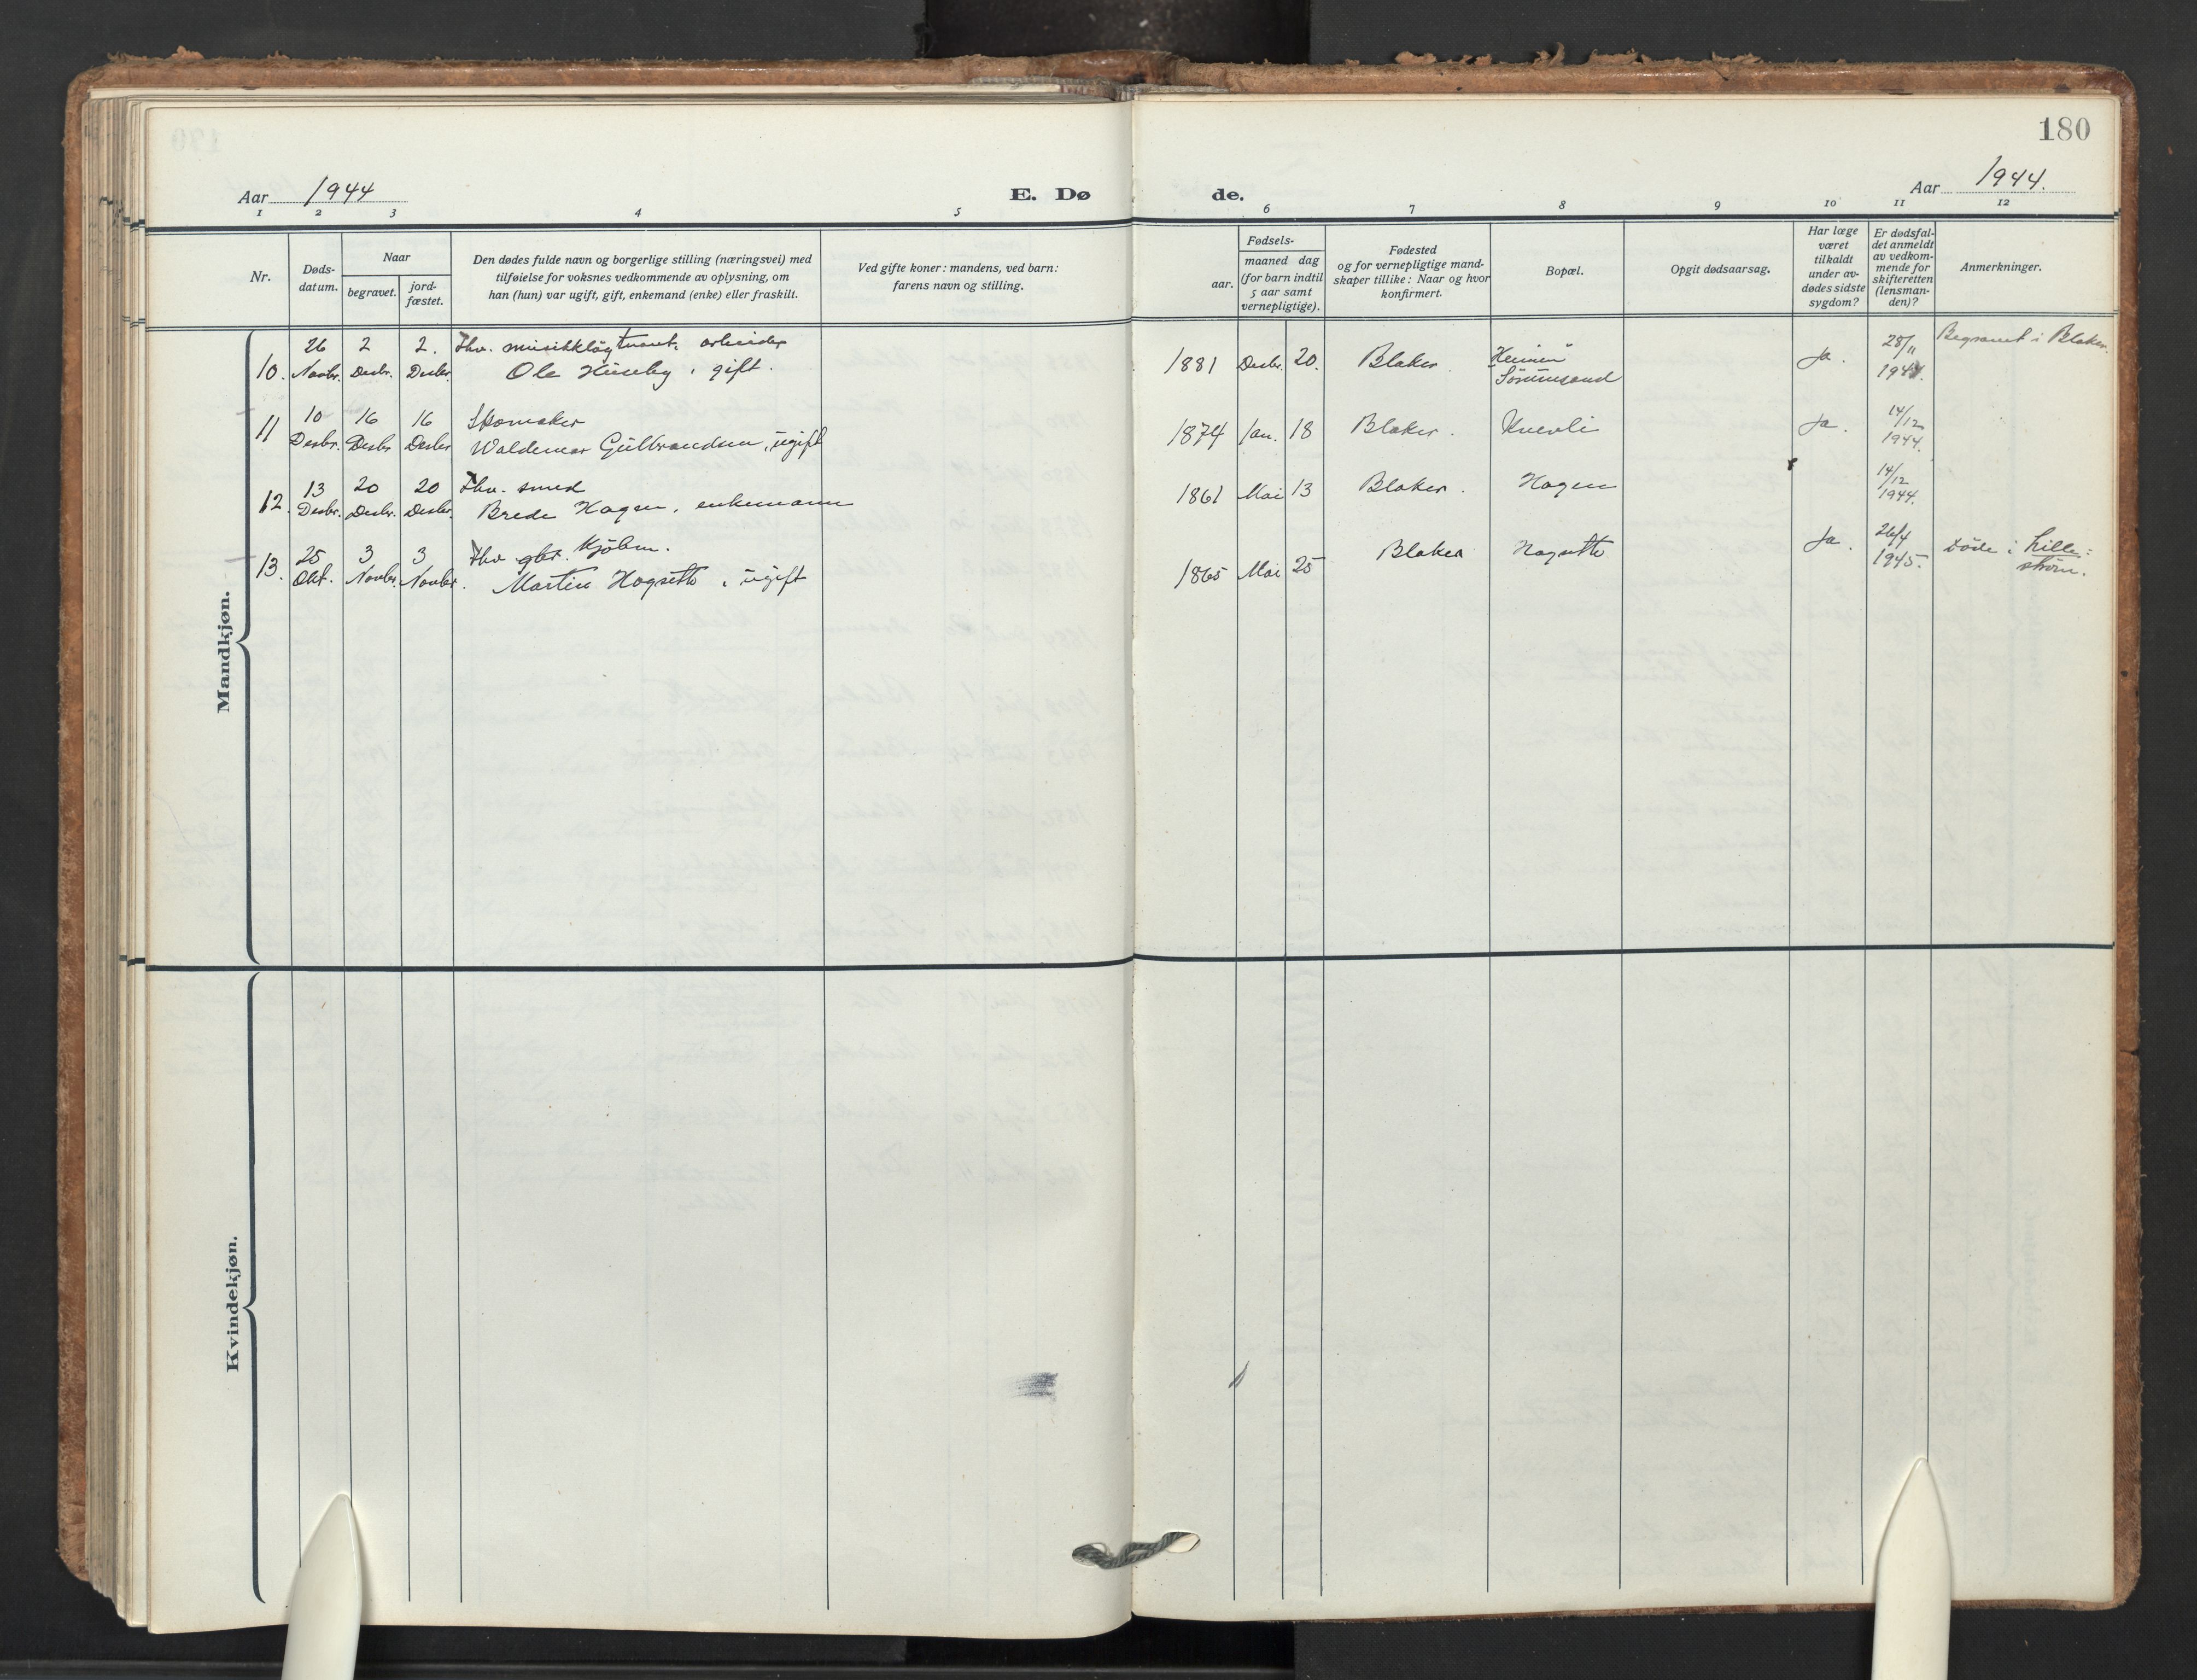 180
Aar 1944
E. Dø de.
Aar 1944.
1 2 3 4 5 6 7 8 9 10 11 12
Nr.
Døds-
datum.
Naar
begravet.
jord-
fæstet.
Den dødes fulde navn og borgerlige stilling (næringsvei) med
tilføielse for voksnes vedkommende av oplysning, om
han (hun) var ugift, gift, enkemand (enke) eller fraskilt.
Ved gifte koner: mandens, ved barn:
farens navn og stilling.
Fødsels-
aar.
maaned dag
(for barn indtil
5 aar samt
vernepligtige).
Fødested
og for vernepligtige mand-
skaper tillike: Naar og hvor
konfirmert.
Bopæl.
Opgit dødsaarsag.
Har læge
været
tilkaldt
under av-
dødes sidste
sygdom?
Er dødsfal-
det anmeldt
av vedkom-
mende for
skifteretten
(lensman-
den)?
Anmerkninger.
Mandkjøn.
26 2 2. Fhv. arbeider 28/11 Begravet i Blaker.
10. Novbr. Desbr. Desbr. Ole Huseby, gift. 1881 Desbr. 20. Blaker. Ja. 1944.
Sørumsand
10 16 16 Skomaker 14/12
11 Desbr. Desbr Desbr Waldemar Gulbrandsen, ugift 1874 Jan. 18 Blaker. Ja. 1944.
13 20 20 Fhv. smed 14/12
12. Desbr. Desbr. Desbr. Brede Hagen, enkemann 1861 Mai 13 Blaker. Hagen 1944.
25 3 3 Fhv 26/4 Døde i Lille=
13. Okt. Novbr. Novbr. Martin Hogsette, ugift 1865 Mai 25 Blaker Hogsette Ja. 1945. strøm.
Kvindekjøn.